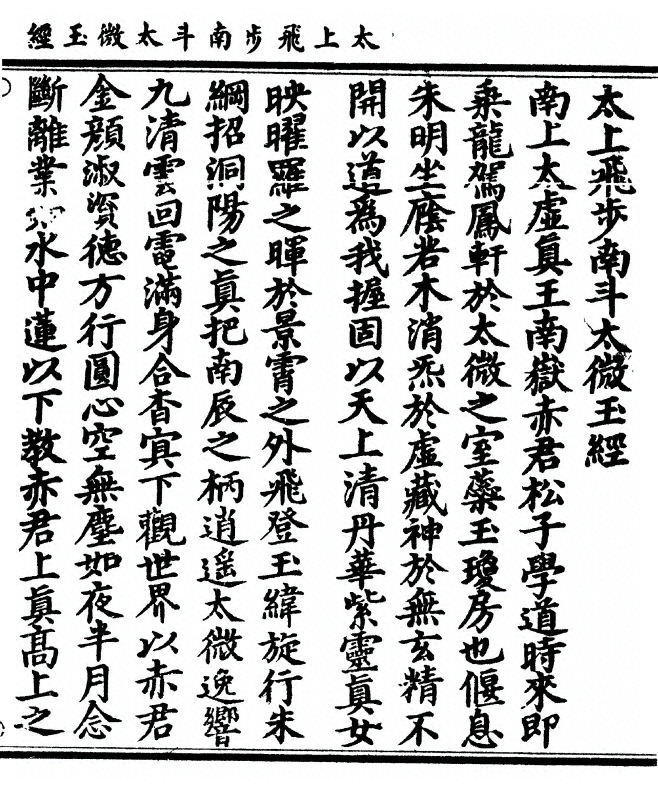 太上飛步南斗太微玉經
太上飛步南斗太微玉經
南上太虛眞王南嶽赤君松子學道時來即
乘龍駕鳳軒於太微之室蘂玉瓊房也偃息
朱明坐廕若木消炁於虛藏神於無玄精不
開以道爲我握固以天上清丹華紫靈眞女
映曜羅之暉於景霄之外飛登玉緯旋行朱
綱招洞陽之眞把南辰之柄逍遥太微逸響
九清雲回電滿身合杳冥下觀世界以赤君
金顏淑資德方行圓心空無塵如夜半月念
斷離業水中蓮以下教赤君上眞高上之